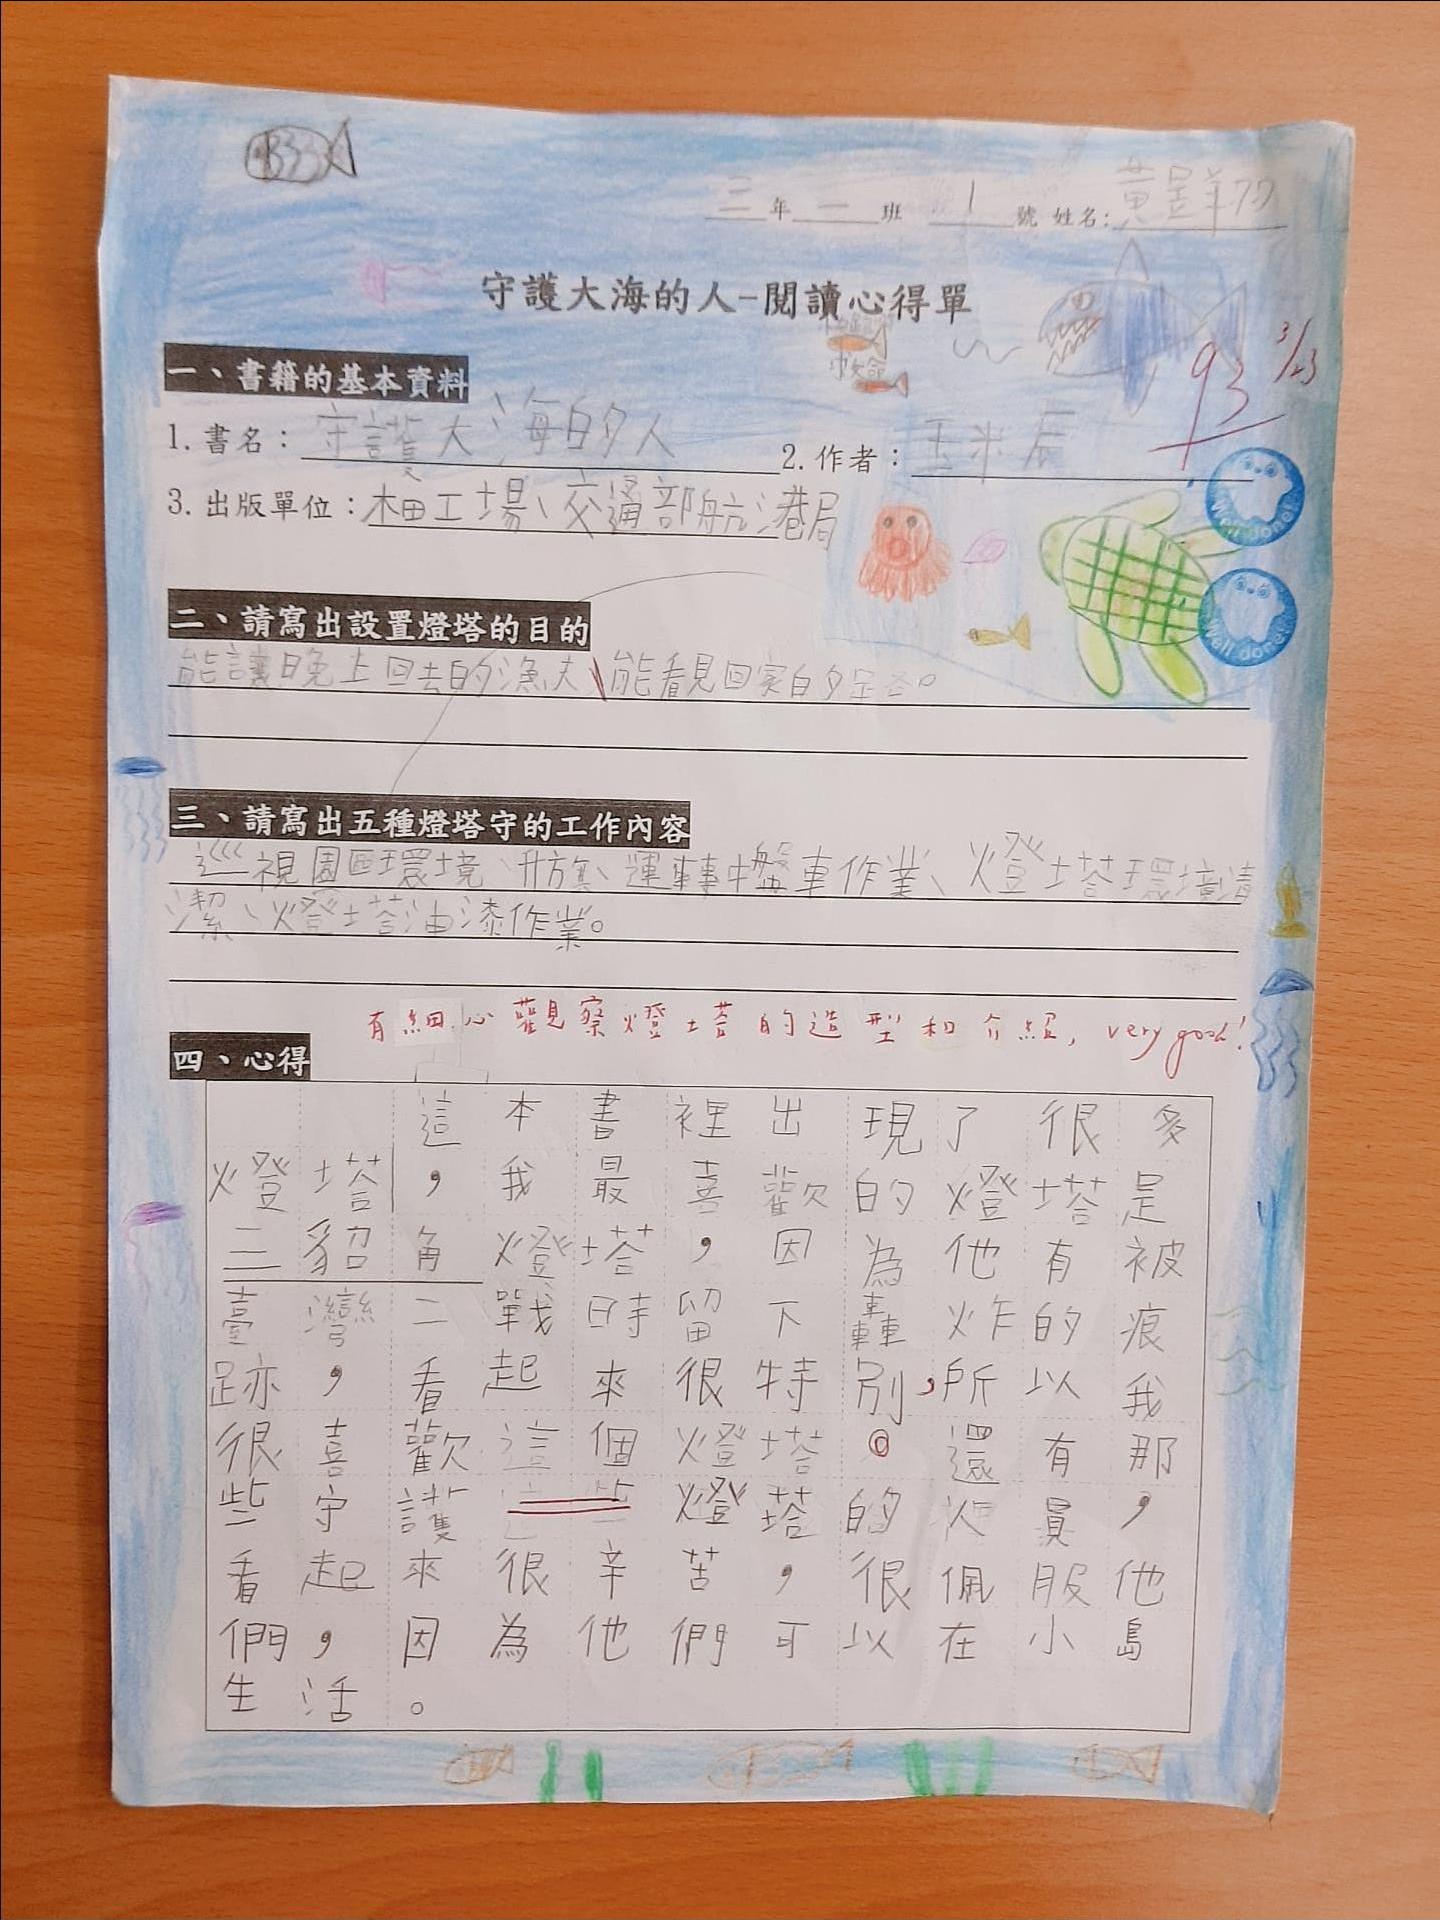 三年一班 1號 姓名:黃昱翔
守護大海的人-閱讀心得單
救命
93
3/23
一、書籍的基本資料
1.書名:守護大海的人 2.作者:玉米辰
3.出版單位:木田工場、交通部航港局
Well done!
Well done!
二、請寫出設置燈塔的目的
能讓晚上回去的漁夫、能看見回家的路。
三、請寫出五種燈塔守的工作內容
巡視園區環境、升旗、運轉絞盤車作業、燈塔環境清
潔、燈塔油漆作業。
有細心觀察燈塔的造型和介紹, very good!
四、心得
這本書裡出現了很多
燈塔,我最喜歡的燈塔是
三貂角燈塔,因為他有被
臺灣二戰時留下轟炸的痕
跡,看起來很特別,所以我
很喜歡這個燈塔。還有那
些守護這些燈塔的人員,
看起來很辛苦,很佩服他
們,因為他們可以在小島
生活。